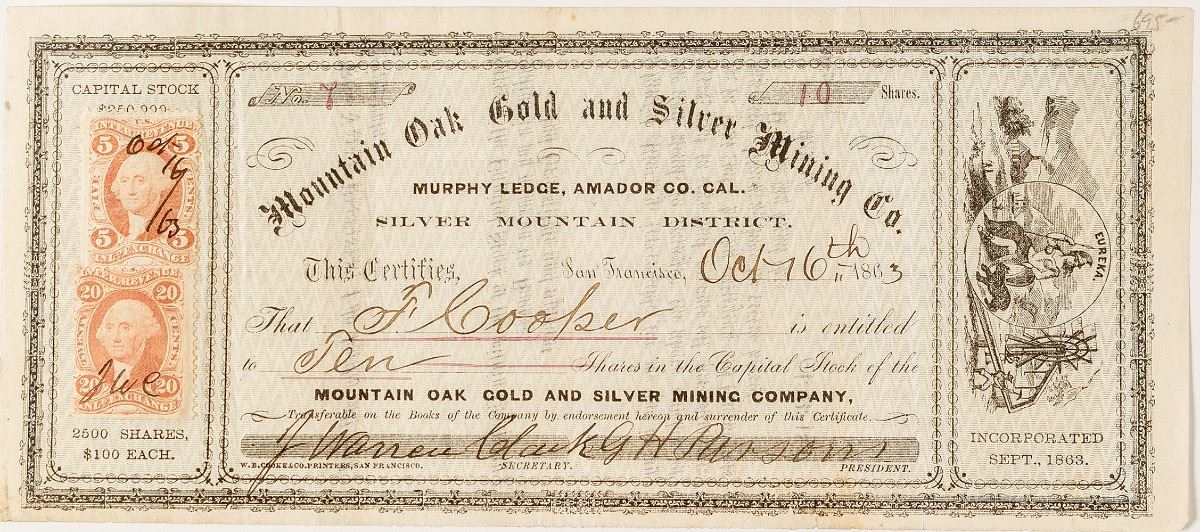 695-
CAPITAL STOCK
5 U.S. 5
INTER. REVENUE
FIVE CENTS.
Oct 16/63
5 5
INL. EXCHANGE
20 20
TWENTY CENTS.
JWC
20 20
INL. EXCHANGE
2500 SHARES,
$100 EACH.
No. 7
10 Shares.
Mountain Oak Gold and Silver Mining Co.
MURPHY LEDGE, AMADOR CO. CAL.
SILVER MOUNTAIN DISTRICT.
This Certifies, San Francisco, Oct 16th 1863
That F. Cooper is entitled
to Ten Shares in the Capital Stock of the
MOUNTAIN OAK GOLD AND SILVER MINING COMPANY,
Transferable on the Books of the Company by endorsement hereon and surrender of this Certificate.
J Warren Clark G H Parsons
W. B. COOKE & CO. PRINTERS, SAN FRANCISCO. SECRETARY. PRESIDENT.
EUREKA.
INCORPORATED
SEPT., 1863.